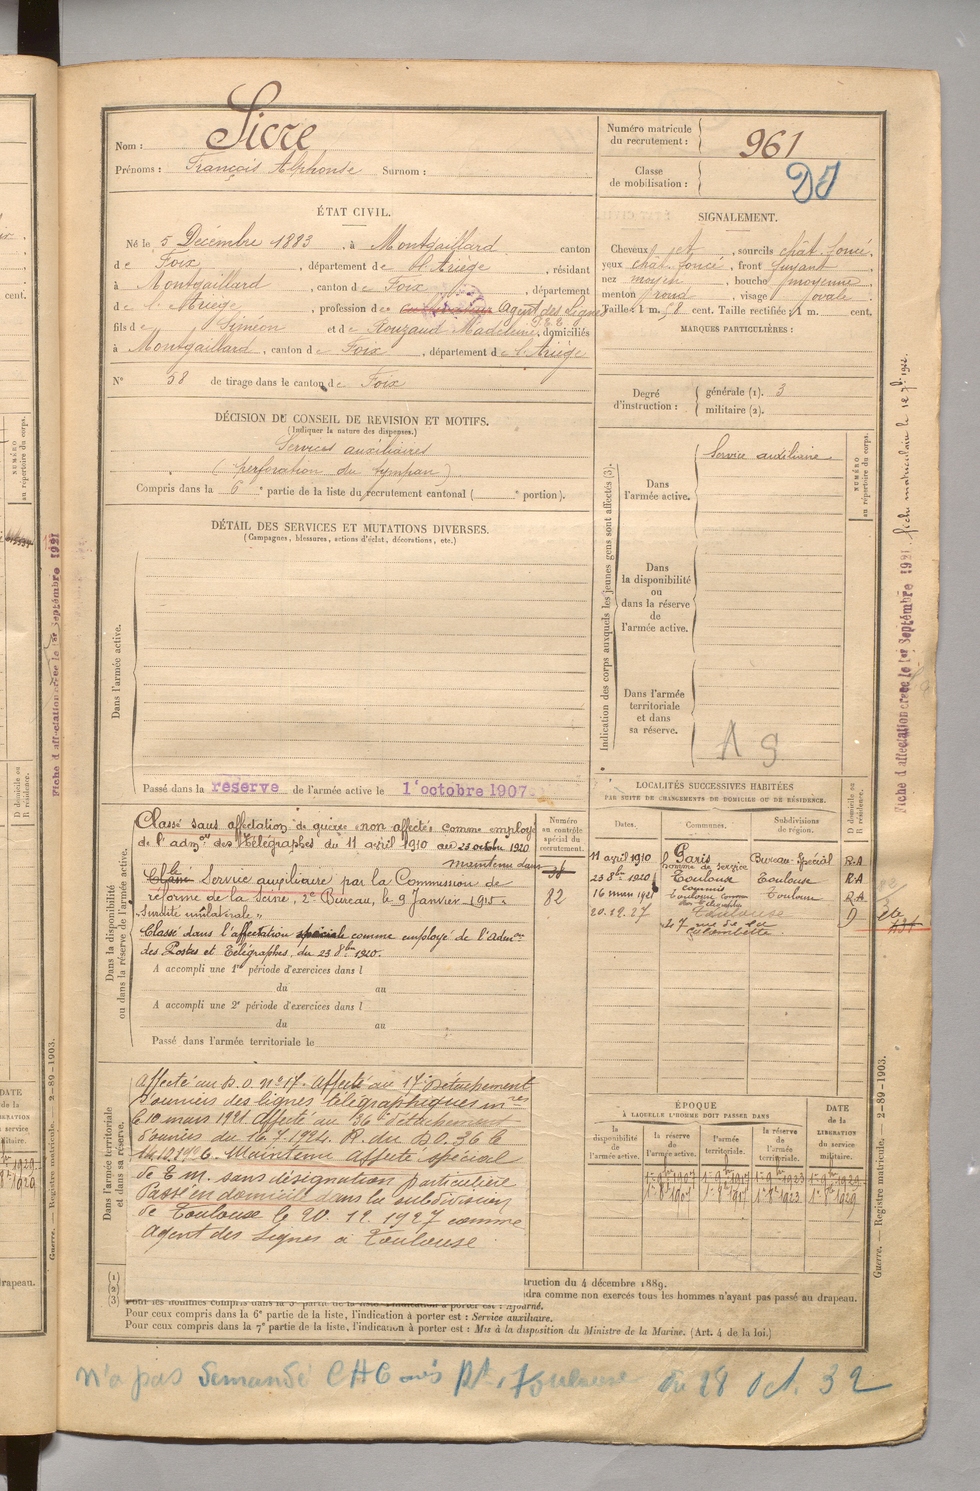 Nom : Sicre
Prénoms : François Alphonse Surnom :
Numéro matricule du recrutement : 961
Classe de mobilisation :
ÉTAT CIVIL.
Né le 5 Décembre 1883, à Montgaillard canton
de Foix, département de l'Ariège, résidant
à Montgaillard, canton de Foix, département
de l'Ariège, profession de cultivateur Agent des Lignes
fils de Siméon et de Rouzaud Madeleine, domiciliés
à Montgaillard, canton de Foix, département de l'Ariège
N° 58 de tirage dans le canton de Foix
SIGNALEMENT.
Cheveux jet, sourcils chât. foncé,
yeux chât. foncé, front fuyant
nez moyen, bouche moyenne
menton rond, visage ovale
Taille : 1 m, 58 cent. Taille rectifiée : 1 m. cent.
MARQUES PARTICULIÈRES :
Degré d'instruction : générale (1). 3
militaire (2).
DÉCISION DU CONSEIL DE REVISION ET MOTIFS.
(Indiquer la nature des dispenses.)
Services auxiliaires
(perforation du tympan)
Compris dans la 6e partie de la liste du recrutement cantonal ( e portion).
DÉTAIL DES SERVICES ET MUTATIONS DIVERSES.
(Campagnes, blessures, actions d'éclat, décorations, etc.)
Dans l'armée active.
Passé dans la réserve de l'armée active le 1er octobre 1907
Indication des corps auxquels les jeunes gens sont affectés (3).
NUMÉRO au répertoire du corps.
Dans l'armée active.
Service auxiliaire
Dans la disponibilité ou dans la réserve de l'armée active.
Dans l'armée territoriale et dans sa réserve.
A S
Dans la disponibilité ou dans la réserve de l'armée active.
Classé sans affectation de guerre "non affecté" comme employé
de l'admon des Télégraphes du 11 avril 1910 au 23 octobre 1920
maintenu dans
Service auxiliaire par la Commission de
réforme de la Seine, 2e Bureau, le 9 Janvier 1915.
"Surdité unilatérale"
Classé dans l'affectation spéciale comme employé de l'Admon
des Postes et Télégraphes, du 23 8bre 1920.
A accompli une 1re période d'exercices dans l
du au
A accompli une 2e période d'exercices dans l
du au
Passé dans l'armée territoriale le
Numéro au contrôle spécial du recrutement.
82
LOCALITÉS SUCCESSIVES HABITÉES
PAR SUITE DE CHANGEMENTS DE DOMICILE OU DE RÉSIDENCE.
Dates. Communes. Subdivisions de région. D domicile ou R résidence.
11 avril 1910 Paris Bureau-Spécial R.A
homme de service
23 8bre 1920 Toulouse Toulouse R.A
commis
16 mars 1921 Toulouse Toulouse R.A
20.12.27 Toulouse D
47 rue de la Colombette
Dans l'armée territoriale et dans sa réserve.
Affecté au D.O. n° 17. Affecté au 17e Détachement
d'ouvriers des lignes télégraphiques mres
le 10 mars 1921 Affecté au 36e détachement
d'ouvriers du 16.7.1924. R. du DO.36 le
Maintenu affecté spécial
de E M. sans désignation particulière
Passé en domicile dans la subdivision
de Toulouse le 20.12.1927 comme
agent des lignes à Toulouse.
ÉPOQUE
À LAQUELLE L'HOMME DOIT PASSER DANS
la disponibilité de l'armée active. la réserve de l'armée active. l'armée territoriale. la réserve de l'armée territoriale. DATE de la LIBÉRATION du service militaire.
(1)
(2)
(3)
truction du 4 décembre 1889.
dra comme non exercés tous les hommes n'ayant pas passé au drapeau.
Pour les hommes compris dans la 5e partie de la liste, l'indication à porter est : Ajourné.
Pour ceux compris dans la 6e partie de la liste, l'indication à porter est : Service auxiliaire.
Pour ceux compris dans la 7e partie de la liste, l'indication à porter est : Mis à la disposition du Ministre de la Marine. (Art. 4 de la loi.)
n'a pas demandé Toulouse du 28 Oct. 32
Fiche d'affectation créée le 1er Septembre 1921
Guerre. — Registre matricule. — 2-89-1903.
Fiche d'affectation créée le 1er Septembre 1921
Guerre. — Registre matricule. — 2-89-1903.